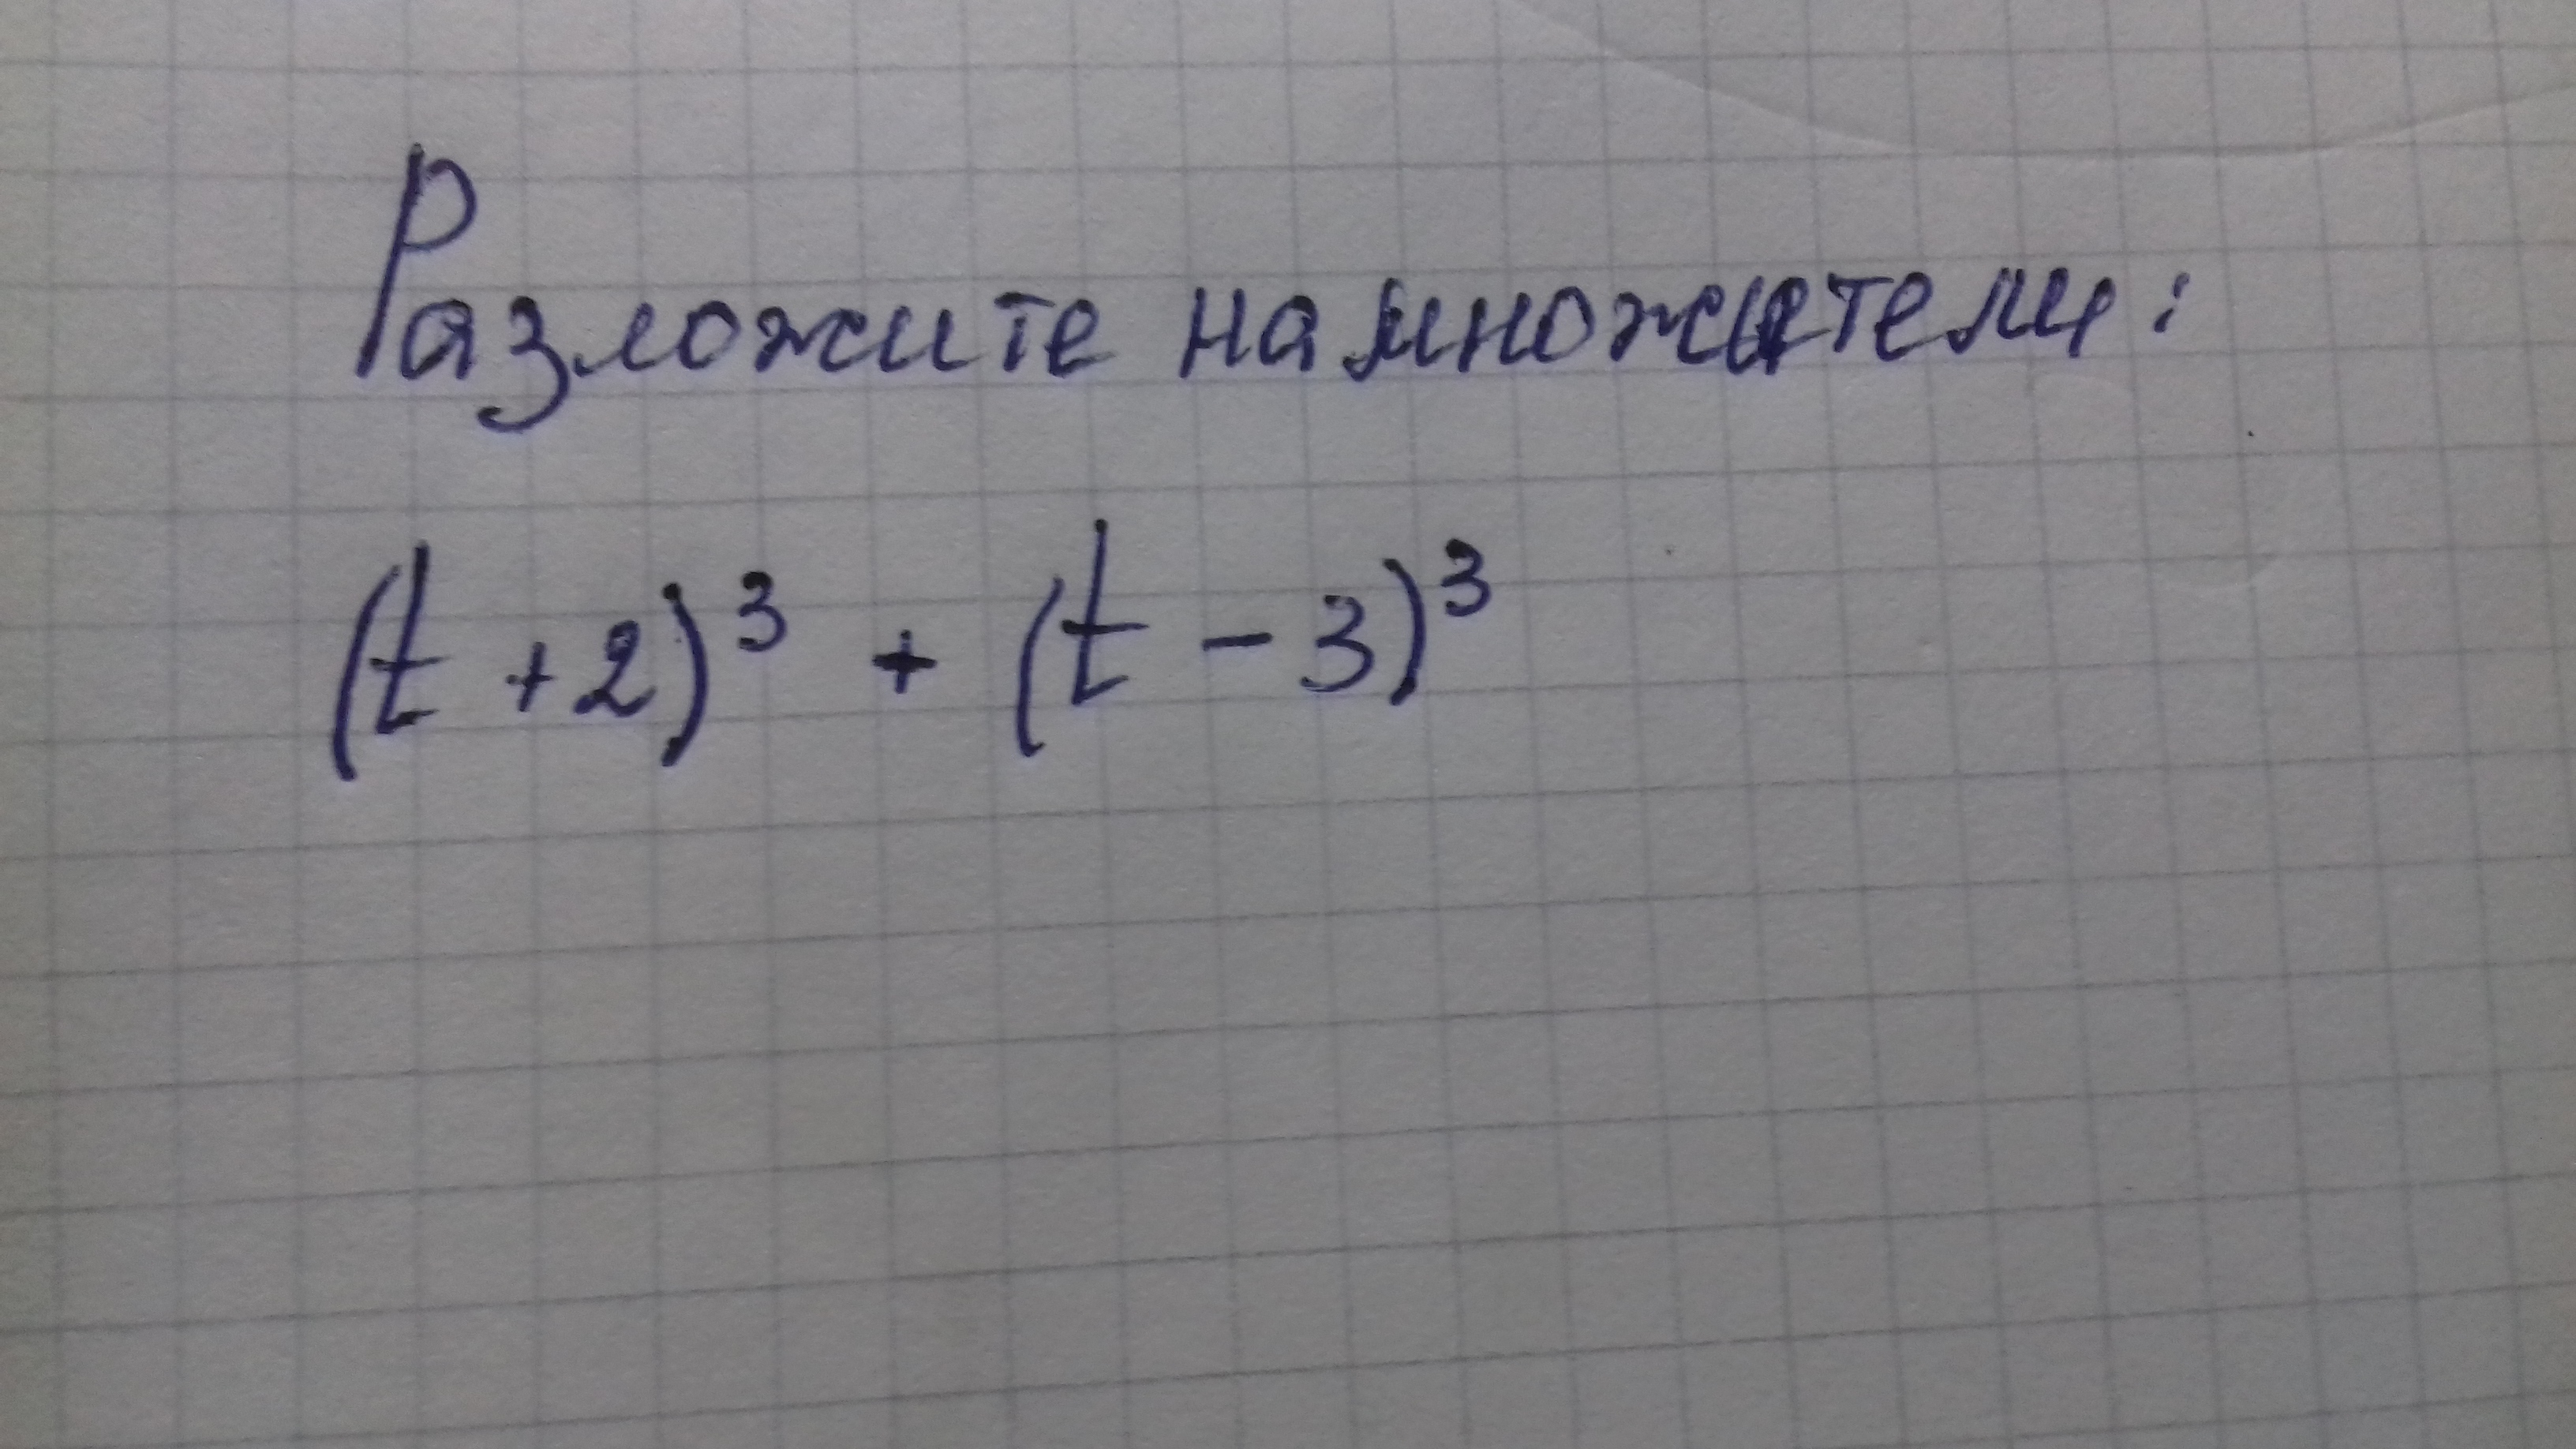 Разложите на множители:
(t + 2)³ + (t - 3)³